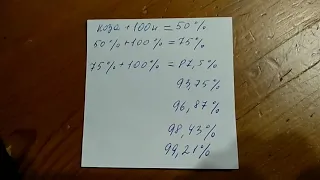 коза + 100н = 50%
50% + 100% = 75%
75% + 100% = 87,5%
93,75%
96,87%
98,43%
99,21%